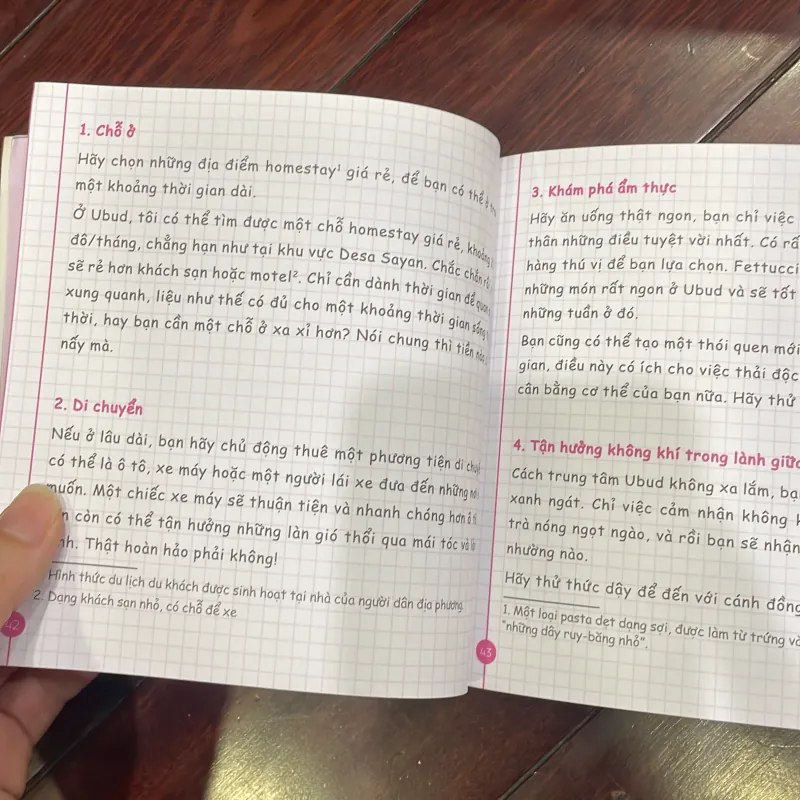 1. Chỗ ở
Hãy chọn những địa điểm homestay¹ giá rẻ, để bạn có thể ở
một khoảng thời gian dài.
Ở Ubud, tôi có thể tìm được một chỗ homestay giá rẻ, khoảng
đô/tháng, chẳng hạn như tại khu vực Desa Sayan. Chắc chắn
sẽ rẻ hơn khách sạn hoặc motel². Chỉ cần dành thời gian để
xung quanh, liệu như thế có đủ cho một khoảng thời gian sống
thời, hay bạn cần một chỗ ở xa xỉ hơn? Nói chung thì tiền nào
nấy mà.
2. Di chuyển
Nếu ở lâu dài, bạn hãy chủ động thuê một phương tiện di
có thể là ô tô, xe máy hoặc một người lái xe đưa đến những
muốn. Một chiếc xe máy sẽ thuận tiện và nhanh chóng hơn ô
còn có thể tận hưởng những làn gió thổi qua mái tóc và
Thật hoàn hảo phải không!
Hình thức du lịch du khách được sinh hoạt tại nhà của người dân địa phương.
2. Dạng khách sạn nhỏ, có chỗ để xe
42
3. Khám phá ẩm thực
Hãy ăn uống thật ngon, bạn chỉ việc
thân những điều tuyệt vời nhất. Có
hàng thú vị để bạn lựa chọn.
những món rất ngon ở Ubud và sẽ tốt
những tuần ở đó.
Bạn cũng có thể tạo một thói quen mới
gian, điều này có ích cho việc thải độc
cân bằng cơ thể của bạn nữa. Hãy thử
4. Tận hưởng không khí trong lành
Cách trung tâm Ubud không xa lắm,
xanh ngát. Chỉ việc cảm nhận không
trà nóng ngọt ngào, và rồi bạn sẽ nhận
nhường nào.
Hãy thử thức dậy để đến với cánh đồng
1. Một loại pasta dẹt dạng sợi, được làm từ trứng
"những dây ruy-băng nhỏ".
43